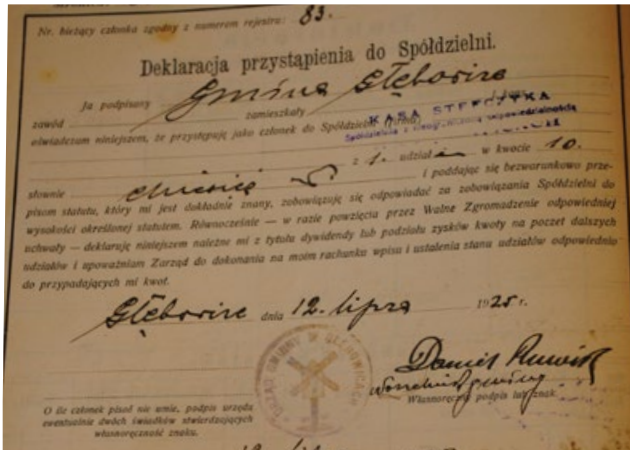 Nr. bieżący członka zgodny z numerem rejestru: 83.
Deklaracja przystąpienia do Spółdzielni.
Ja podpisany Gmina Głębowice
zawód zamieszkały
oświadczam niniejszem, że przystępuję jako członek do Spółdzielni (firma) KASA STEFCZYKA
Spółdzielnia z nieograniczoną odpowiedzialnością
z 1. udziałem w kwocie 10.
słownie dziesięć i poddając się bezwarunkowo prze-
pisom statutu, który mi jest dokładnie znany, zobowiązuję się odpowiadać za zobowiązania Spółdzielni do
wysokości określonej statutem. Równocześnie — w razie powzięcia przez Walne Zgromadzenie odpowiedniej
uchwały — deklaruję niniejszem należne mi z tytułu dywidendy lub podziału zysków kwoty na poczet dalszych
udziałów i upoważniam Zarząd do dokonania na moim rachunku wpisu i ustalenia stanu udziałów odpowiednio
do przypadających mi kwot.
Głębowice dnia 12. lipca 1925 r.
URZĄD GMINNY W GŁĘBOWICACH
Daniel
Własnoręczny podpis lub znak.
O ile członek pisać nie umie, podpis urzędu
ewentualnie dwóch świadków stwierdzających
własnoręczność znaku.